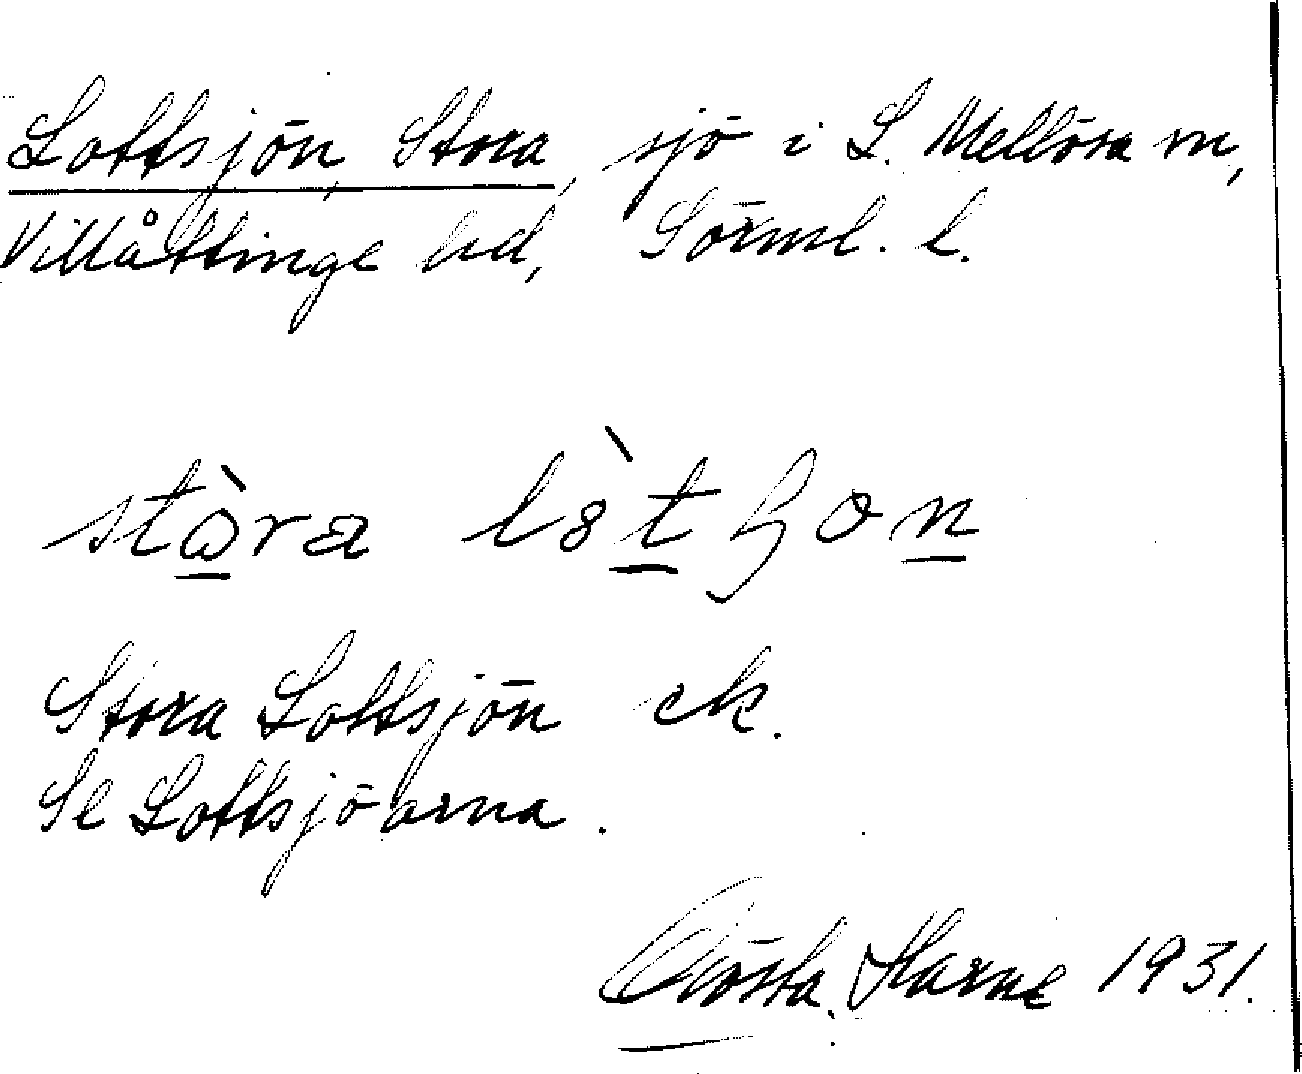 Lottsjön, Stora, sjö i L. Mellösa sn,
Villåttinge hd, Sörml. l.
stὼra lòtʂon
Stora Lottsjön ek.
Se Lottsjöarna.
Gösta Harne 1931.